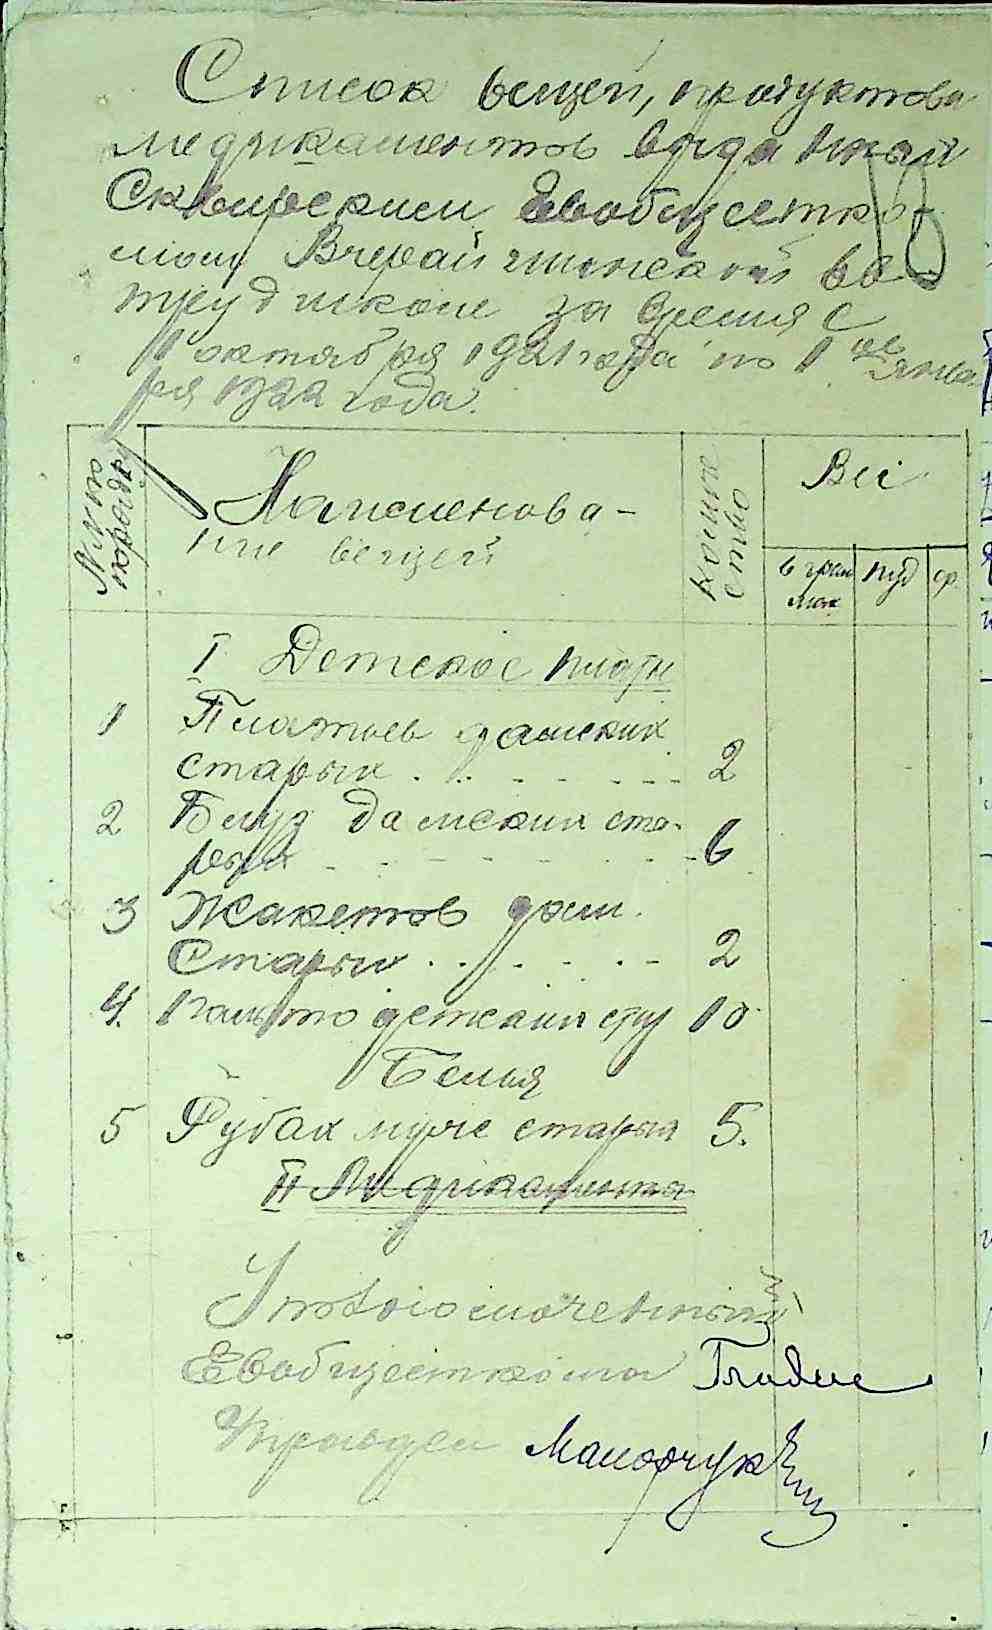 Список вещей, продуктов и
медикаментов выданной
Сквирским Евобщестко-
мом Вчерайшинской ев
трудшколе за время с
1 октября 1921 года по 1ое янва
ря 1922 года.
№№ по порядку
Наименова-
ние вещей
Количе
ство
Вес
в грам
мах
пуд
ф.
I Детское плать
1 Платьев дамских
старых . . . . . . . 2
2 Блуз дамских ста-
рых - - - - - - - 6
3 Жакетов дам.
Старых . . . . . . - 2
4. Пальто детских стр 10
Белья
5 Рубах муже старых 5.
II Медикаменты
Уполномоченный
Евобщесткома
Управдел